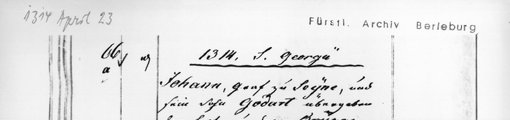 1314 April 23
Fürstl. Archiv Berleburg
66
a
1314. S. Georgii
Johann, Graf zu Seyne, und
sein Sohn Godart übergeben